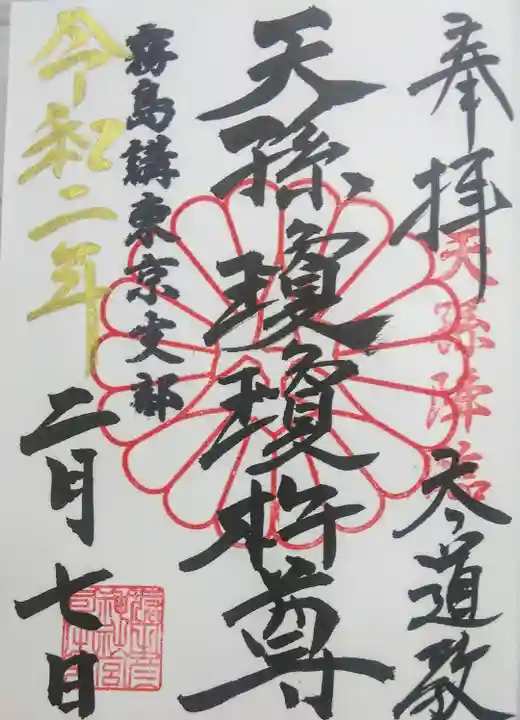 奉拝
天孫降臨
参道教
天孫瓊瓊杵尊
霧島講東京支部
令和二年
二月七日